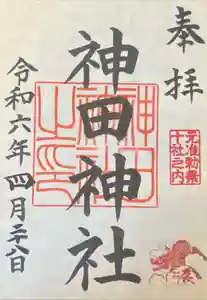 奉拝
元准勅祭
十社之内
神田神社
神田
神社
之印
令和六年四月二十八日